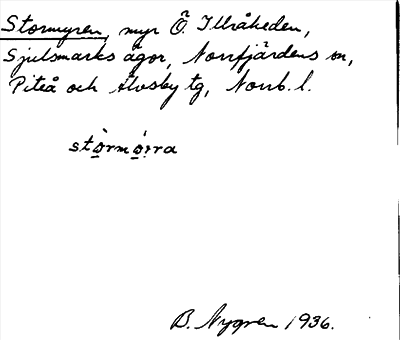 Stormyren, myr Ö. Illråheden,
Sjulsmarks ägor, Norrfjärdens sn,
Piteå och Älvsby tg, Norrb. l.
stò̱rmó̱rra
B. Nygren 1936.